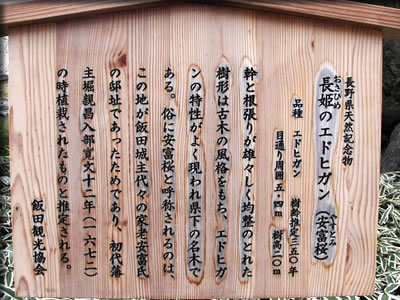 長野県天然記念物
長姫のエドヒガン（安富桜）
おさひめ
やすとみ
品種 エドヒガン 樹齢推定三五〇年
目通り周囲 五・四m 樹高二〇m
幹と根張りが雄々しく均整のとれた
樹形は古木の風格をもち、エドヒガ
ンの特性がよく現われ県下の名木で
ある。俗に安富桜と呼称されるのは、
この地が飯田城主代々の家老安富氏
の邸址であったためであり、初代藩
主堀親昌入部寛文十二年（一六七二）
の時植栽されたものと推定される。
飯田観光協会